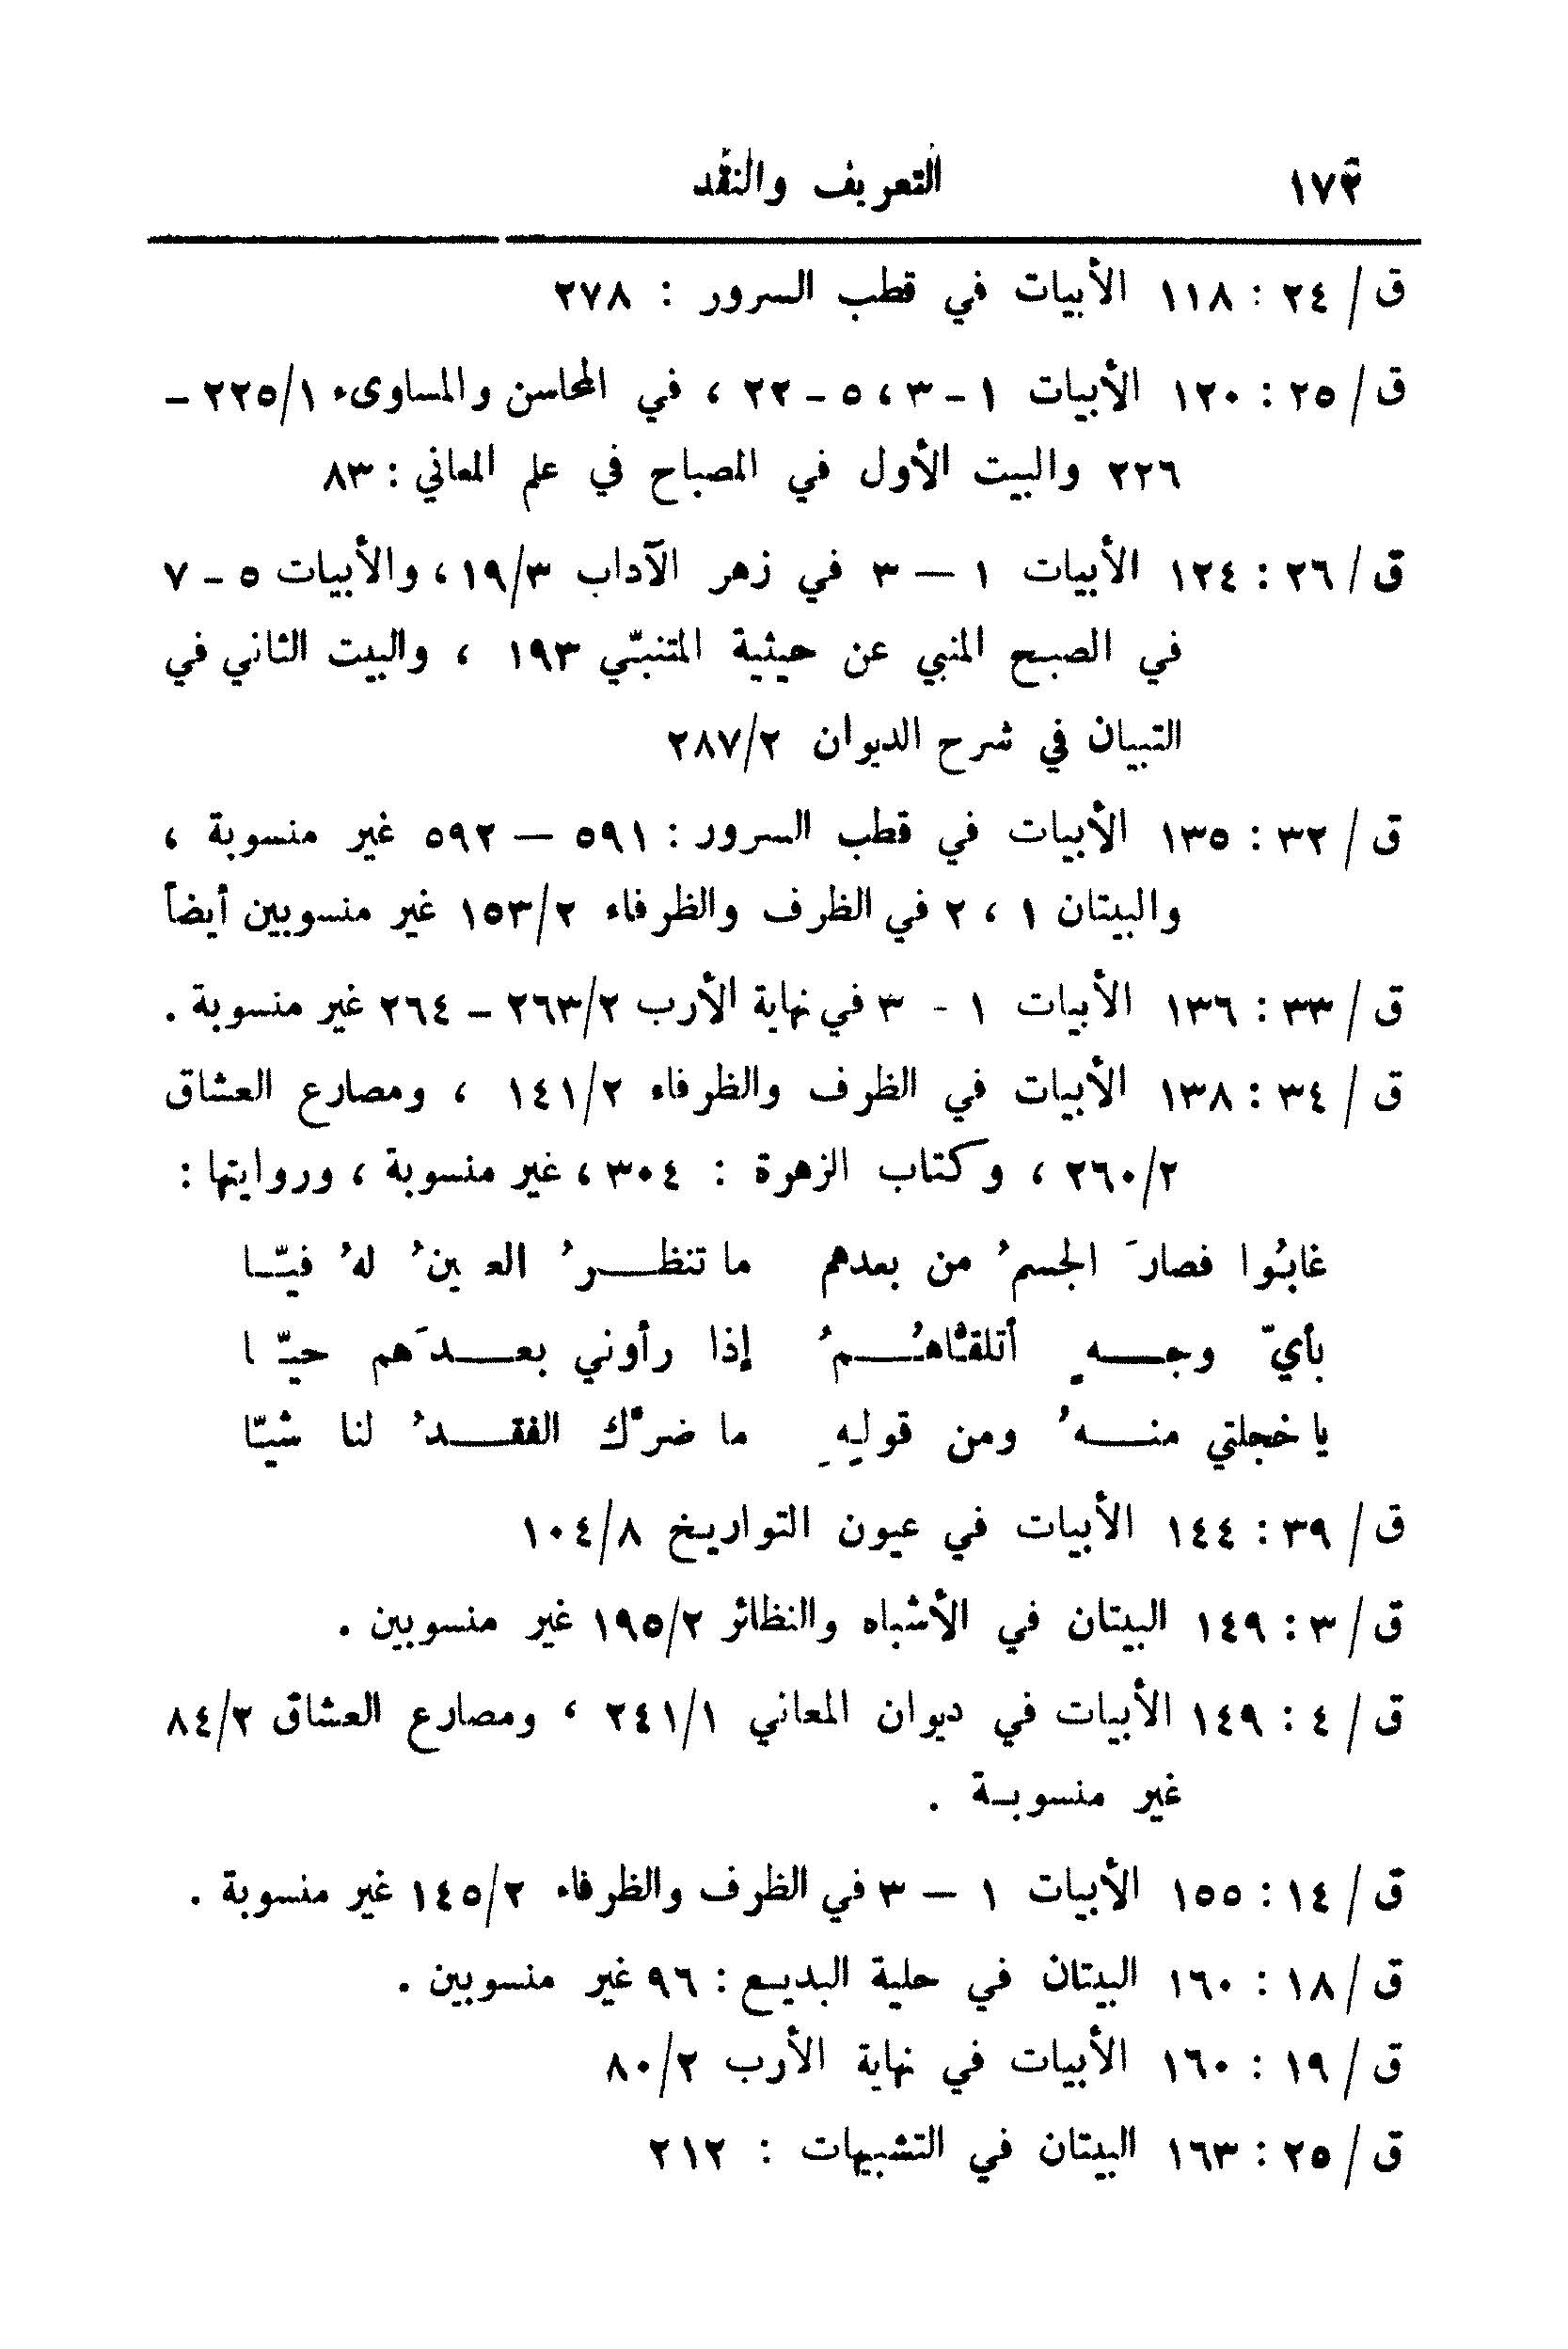 ١٧٢ التعريف والنقد
ق / ٢٤ : ١١٨ الأبيات في قطب السرور : ٢٧٨
ق / ٢٥ : ١٢٠ الأبيات ١ - ٣ ، ٥ - ٢٢ ، في المحاسن والمساوىء ٢٢٥/١ -
٢٢٦ والبيت الأول في المصباح في علم المعاني : ٨٣
ق / ٢٦ : ١٢٤ الأبيات ١ — ٣ في زهر الآداب ١٩/٣ ، والأبيات ٥ - ٧
في الصبح المنبي عن حيثية المتنبّي ١٩٣ ، والبيت الثاني في
التبيان في شرح الديوان ٢٨٧/٢
ق / ٣٢ : ١٣٥ الأبيات في قطب السرور : ٥٩١ — ٥٩٢ غير منسوبة ،
والبيتان ١ ، ٢ في الظرف والظرفاء ١٥٣/٢ غير منسوبين أيضاً
ق / ٣٣ : ١٣٦ الأبيات ١ - ٣ في نهاية الأرب ٢٦٣/٢ - ٢٦٤ غير منسوبة .
ق / ٣٤ : ١٣٨ الأبيات في الظرف والظرفاء ١٤١/٢ ، ومصارع العشاق
٢٦٠/٢ ، وكتاب الزهرة : ٣٠٤ ، غير منسوبة ، وروايتها :
غابُوا فصارَ الجسمُ من بعدهم ما تنظرُ العينُ لهُ فيّا
بأيّ وجهٍ أتلقّاهُمُ إذا رأوني بعدَهم حيّا
يا خجلتي منهُ ومن قولِهِ ما ضرَّك الفقدُ لنا شيّا
ق / ٣٩ : ١٤٤ الأبيات في عيون التواريخ ١٠٤/٨
ق / ٣ : ١٤٩ البيتان في الأشباه والنظائر ١٩٥/٢ غير منسوبين .
ق / ٤ : ١٤٩ الأبيات في ديوان المعاني ٢٤١/١ ، ومصارع العشاق ٨٤/٢
غير منسوبة .
ق / ١٤ : ١٥٥ الأبيات ١ — ٣ في الظرف والظرفاء ١٤٥/٢ غير منسوبة .
ق / ١٨ : ١٦٠ البيتان في حلية البديع : ٩٦ غير منسوبين .
ق / ١٩ : ١٦٠ الأبيات في نهاية الأرب ٨٠/٢
ق / ٢٥ : ١٦٣ البيتان في التشبيهات : ٢١٢